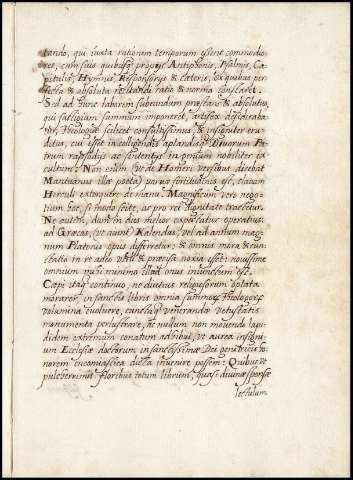 tando, qui iuxta rationem temporum essent commodio
res, cum suis quibusq; proprijs Antiphonis, Psalmis, Ca
pitulis, Hymnis, Responsorijs & cæteris, ex quibus per
fecta & absoluta recitandi ratio & norma constaret.
Sed ad hunc laborem subeundum præstans & absolutus,
qui fastigium summum imponeret, artifex desideraba
tur, Theologiæ scilicet consultissimus, & insigniter eru
ditus, cui esset in colligendis aptandisq; Diuorum Pa
trum rapsodijs ac sententijs ingenium nobiliter ex
cultum. Non enim (vt de Homeri versibus dicebat
Mantuanus ille poeta) paruæ fortitudinis est, clauam
Herculi extorquere de manu. Magnificum vero nego
tium hoc, si modo scite, ac pro rei dignitate tractetur.
Ne autem, dum in dies melior expectatur operatius,
ad Græcas, (vt aiunt) Kalendas, vel ad annum mag
num Platonis opus differretur: & omnis mora & cun
ctatio in re adeo vtili & præcisa noxia esset: nouissime
omnium mihi minimo illud onus iniunctum est.
Cæpi itaq; continuo, ne diutius religiosorum optata
morarer, in sanctis libris omnia summorum Theologorum
volumina euoluere, cunctaq; venerandæ vetustatis
monumenta perlustrare, ac nullum non mouendo lapi
didem extremum conatum adhibui, vt aurea insigni
um Ecclesiæ doctorum in sanctissimæ Dei genitricis ho
norem encomiastica dicta inuenire possem: Quibus vt
pulcherrimis floribus totum librum, quasi diuinæ sponsæ
lectulum